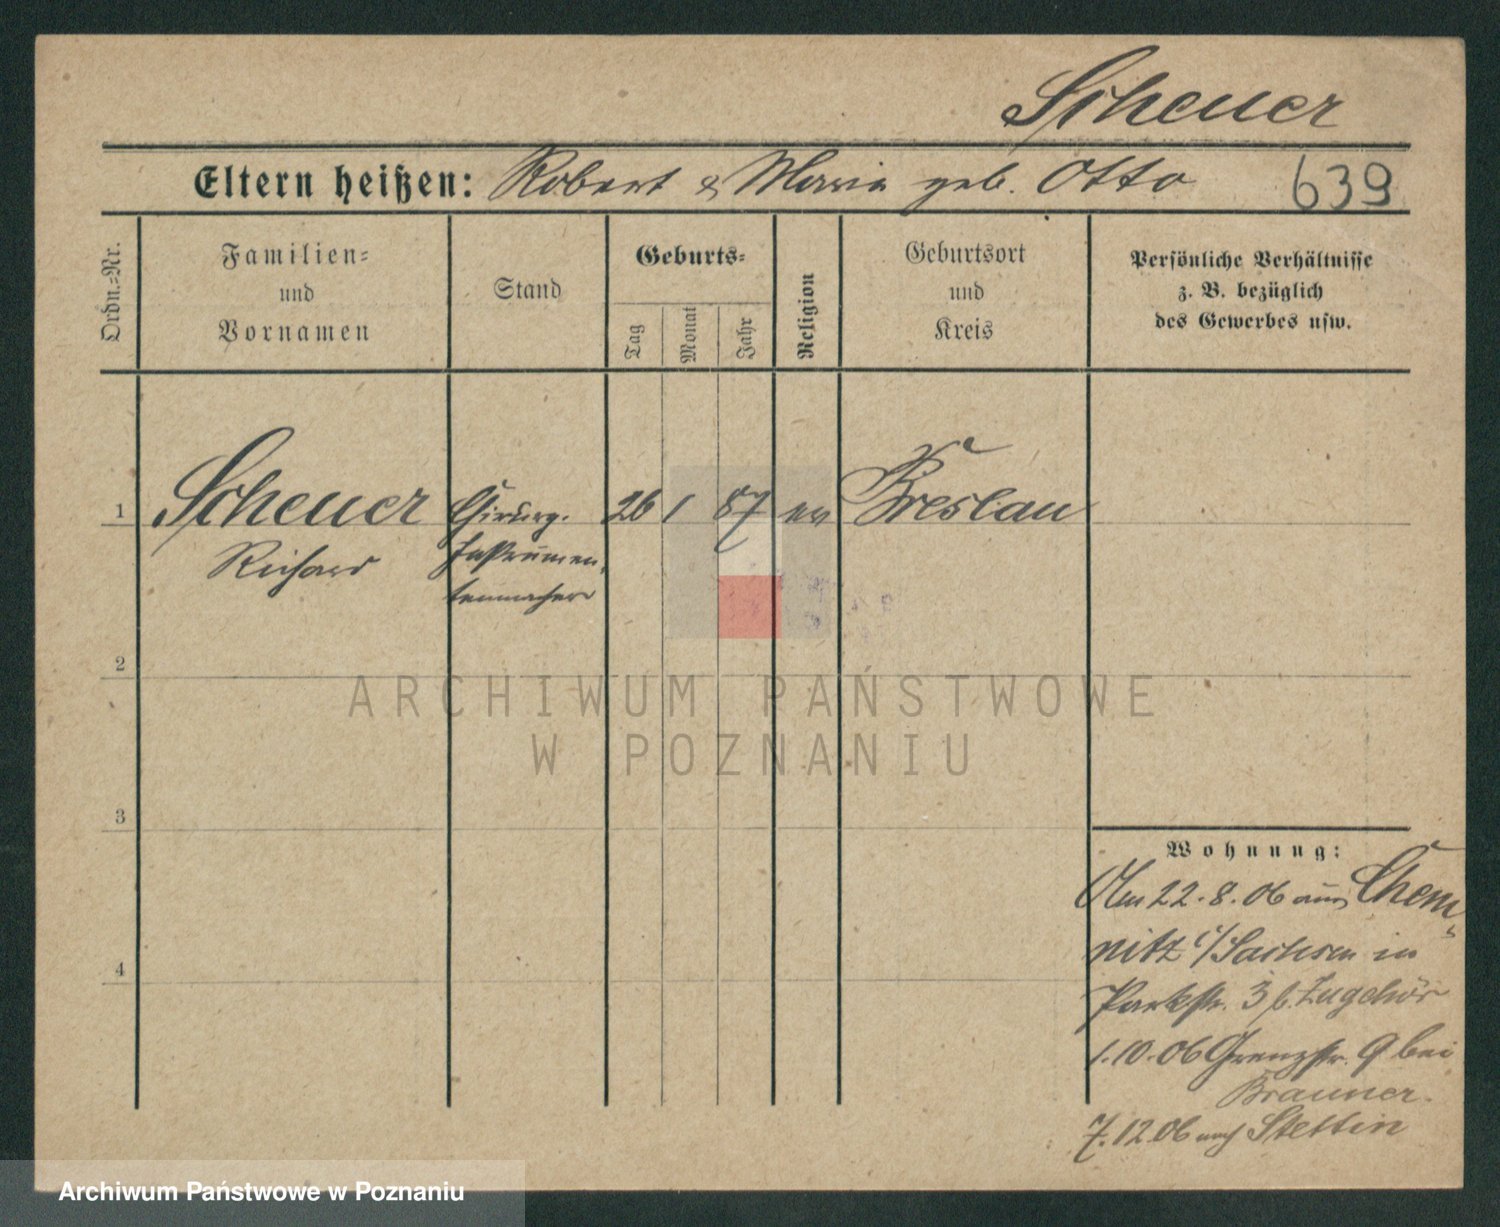 Scheuer
Eltern heißen: Robert & Maria geb. Otto 639
Ordn.-Nr.
Familien-
und
Vornamen
Stand
Geburts-
Tag
Monat
Jahr
Religion
Geburtsort
und
Kreis
Persönliche Verhältnisse
z. B. bezüglich
des Gewerbes usw.
1 Scheuer Chirurg. 26 1 87 ev Breslau
Richard Instrumen-
tenmacher
2
ARCHIWUM PAŃSTWOWE
W POZNANIU
3
Wohnung:
Am 22.8.06 aus Chem-
nitz i/Sachsen in
4
Parkstr. 3 b. Zugehör
1.10.06 Grenzstr. 9 bei
Brauner.
7.12.06 nach Stettin
Archiwum Państwowe w Poznaniu